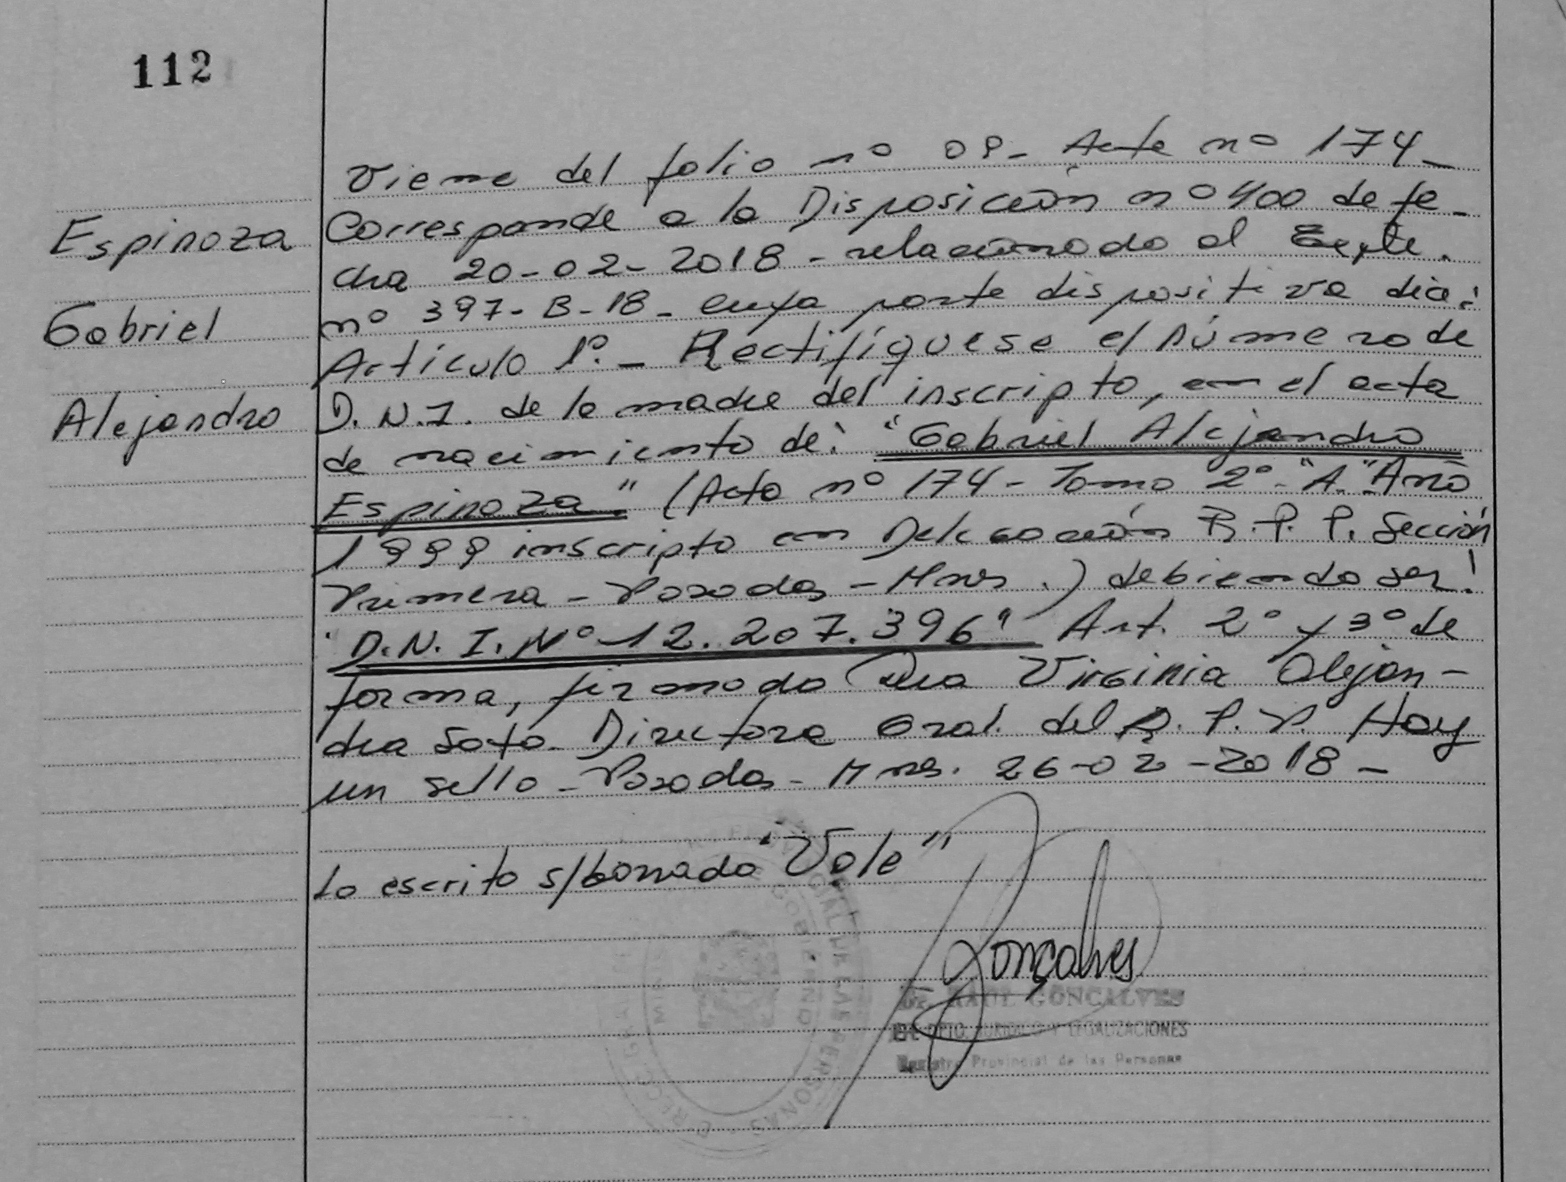 112
Espinoza
Gabriel
Alejandro
Viene del folio nº 09- Acta nº 174-
Corresponde a la Disposición nº 400 de fe-
cha 20-02-2018 - relacionado al Expte.
nº 397-B-18- cuya parte dispositiva dice:
Artículo 1º.- Rectifíquese el número de
D.N.I. de la madre del inscripto, en el acta
de nacimiento de: "Gabriel Alejandro
Espinoza" (Acta nº 174 - Tomo 2º - "A" Año
1999 inscripto en Delegación R.P.P. Sección
Primera - Posadas - Mnes.) debiendo ser:
"D.N.I. Nº 12.207.396" Art. 2º y 3º de
forma, firmado Dra Virginia Alejan-
dra Soto Directora Gral. del R.P.P. Hay
un sello - Posadas - Mnes. 26-02-2018-
Lo escrito s/borrado "Vale"
Gonçalves
Dr. RAUL GONCALVES
DPTO. JURIDICO Y LEGALIZACIONES
Registro Provincial de las Personas